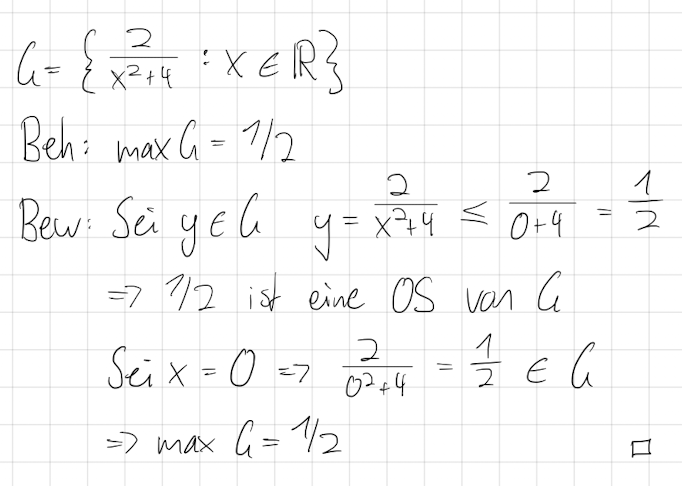 G = { 2/(x²+4) : x ∈ ℝ }
Beh: max G = 1/2
Bew: Sei y ∈ G y = 2/(x²+4) ≤ 2/(0+4) = 1/2
=> 1/2 ist eine OS von G
Sei x = 0 => 2/(0²+4) = 1/2 ∈ G
=> max G = 1/2 □